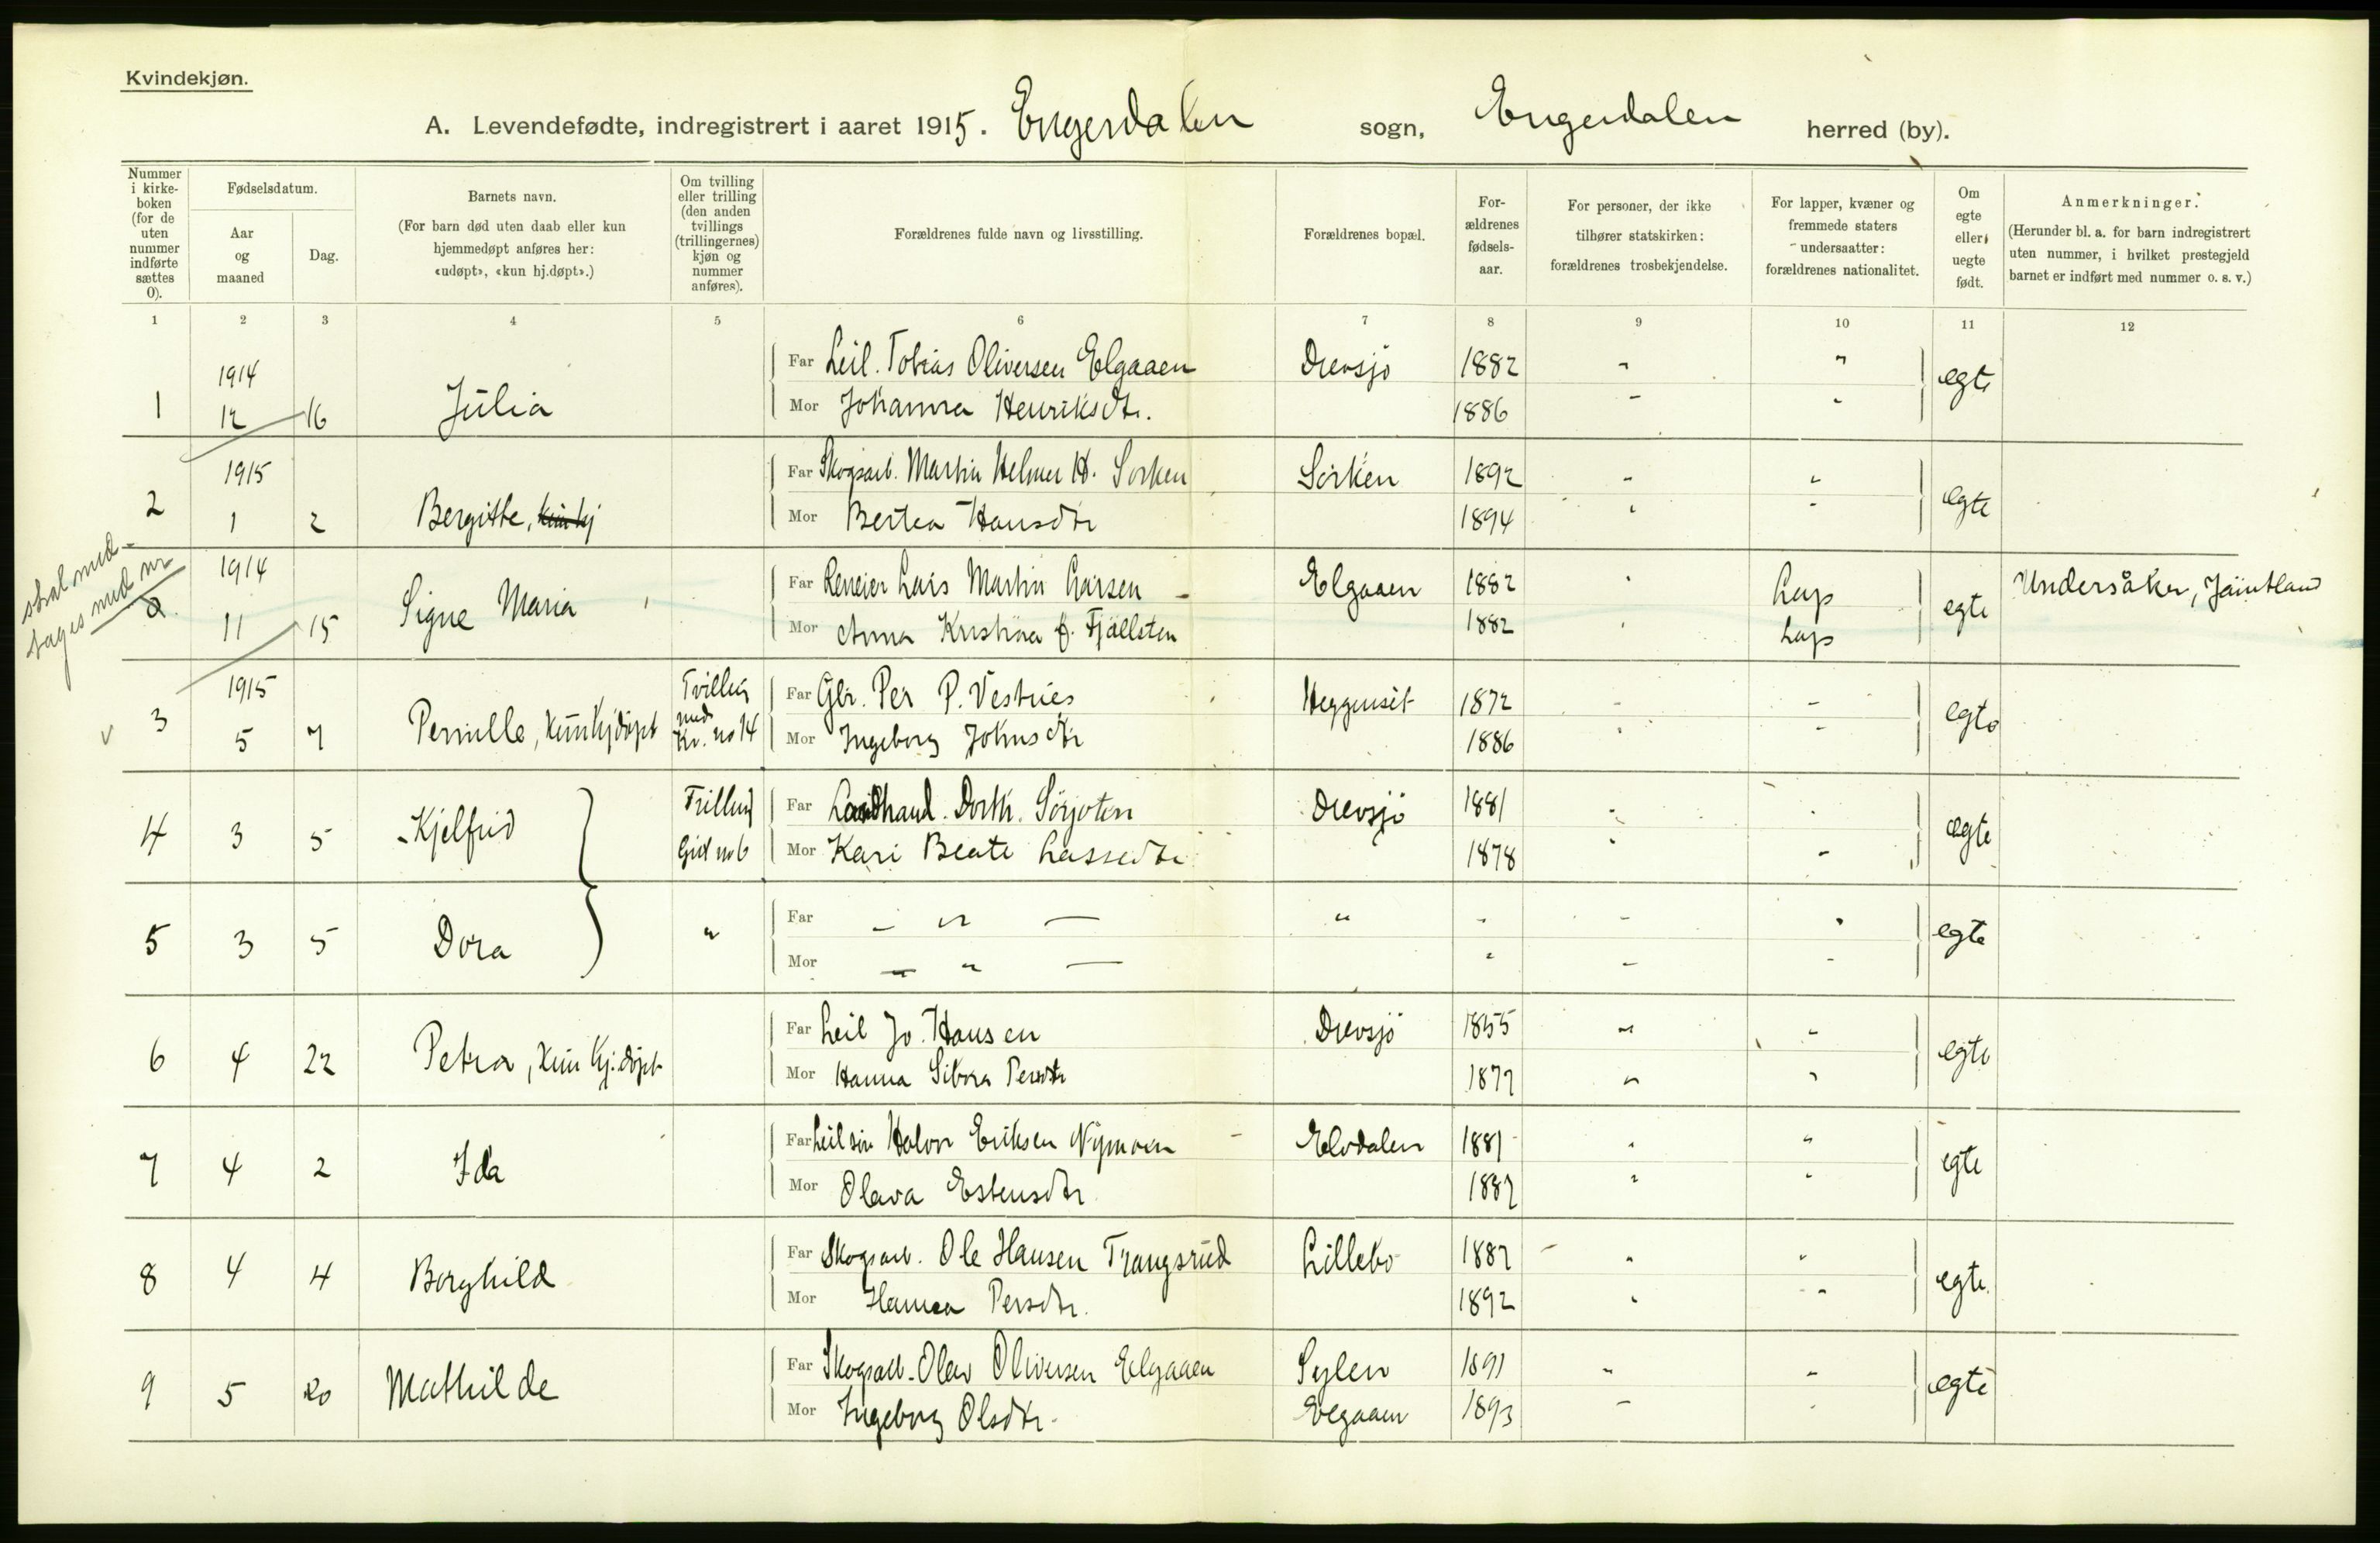 Kvindekjøn.
A. Levendefødte, indregistrert i aaret 1915. Engerdalen sogn, Engerdalen herred (by).
Nummer i kirke- boken (for de uten nummer indførte sættes 0).
Fødselsdatum.
Aar og maaned
Dag.
Barnets navn.
(For barn død uten daab eller kun hjemmedøpt anføres her: «udøpt», «kun hj.døpt».)
Om tvilling eller trilling (den anden tvillings (trillingernes) kjøn og nummer anføres).
Forældrenes fulde navn og livsstilling.
Forældrenes bopæl.
For- ældrenes fødsels- aar.
For personer, der ikke tilhører statskirken: forældrenes trosbekjendelse.
For lapper, kvæner og fremmede staters undersaatter: forældrenes nationalitet.
Om egte eller uegte født.
Anmerkninger.
(Herunder bl. a. for barn indregistrert uten nummer, i hvilket prestegjeld barnet er indført med nummer o. s. v.)
1 2 3 4 5 6 7 8 9 10 11 12
1914
Far Leil. Tobias Oliversen Elgaaen Drevsjö 1882 " "
1 12 16 Julia egte
Mor Johanna Henriksdtr. 1886 " "
1915
Far Skogsarb. Martin Helmer H. Sorken Sorken 1892 " "
2 1 2 Bergitte, egte
Mor Bertea Hansdtr 1894 " "
skal med-
tages med nr
1914
Far Reneier Lars Martin Larsen Elgaaen 1882 " Lap Undersåker, Jämtland
0 11 15 Signe Maria egte
Mor Anna Kristina f. Fjällsten 1882 " Lap
1915
Far Gbr. Per P. Vestnes Heggenset 1872 " "
3 5 7 Pernille, kun hjdöpt Tvilling med Kv. no 14 egte
Mor Ingeborg Johnsdtr 1886 " "
Far Landhand. Dorth. Sörjoten Drevsjö 1881 " "
4 3 5 Kjelfrid Trilling Gut no 6 egte
Mor Kari Beate Lassedtr 1878 " "
Far — " — " " " "
5 3 5 Dora " egte
Mor — " — " " "
Far Leil Jo. Hansen Drevsjö 1855 " "
6 4 22 Petra, kun hj.döpt egte
Mor Hanna Sibora Persdtr 1877 " "
Far Leilsön Halvor Eriksen Nymoen Elvdalen 1881 " "
7 4 2 Ida egte
Mor Olava Estensdtr 1887 " "
Far Skogsarb. Ole Hansen Trangsrud Lillebo 1887 " "
8 4 4 Borghild egte
Mor Hanna Persdtr. 1892 " "
Far Skogsarb. Olav Oliversen Elgaaen Sylen 1891 " "
9 5 20 Mathilde egte
Mor Ingeborg Olsdtr. Elgaaen 1893 " "